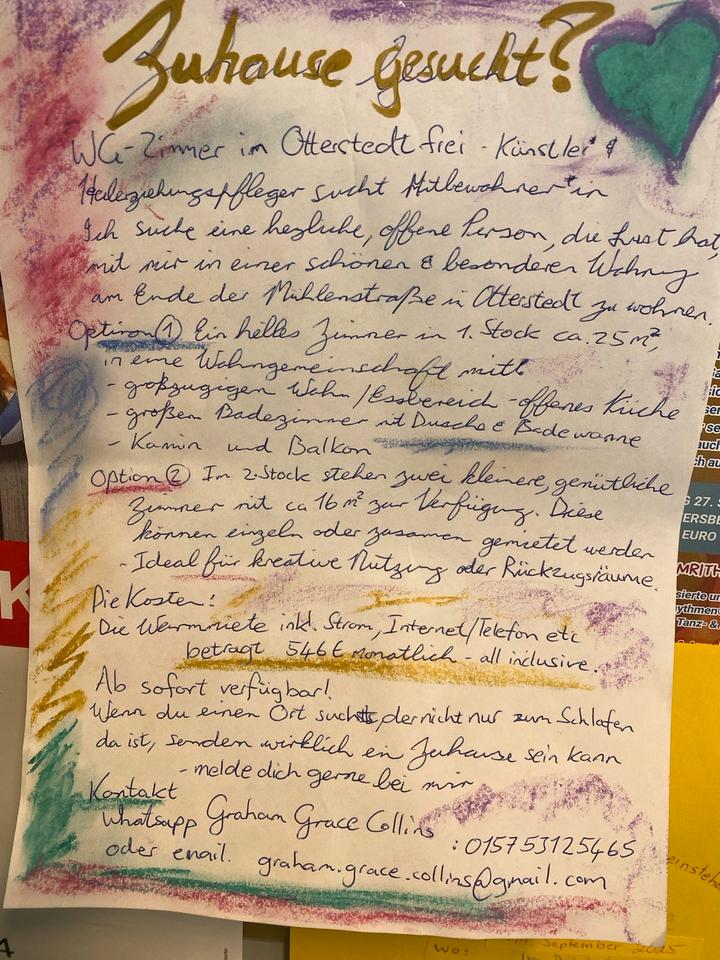 Zuhause gesucht?
WG-Zimmer im Otterstedt frei - Künstler &
Heilerziehungspfleger sucht Mitbewohner*in
Ich suche eine hezliche, offene Person, die Lust hat,
mit mir in einer schönen & besonderen Wohnung
am Ende der Mühlenstraße in Otterstedt zu wohnen.
Option ① Ein helles Zimmer in 1. Stock ca. 25 m²,
in eine Wohngemeinschaft mit:
- großzugigen Wohn/Essbereich - offenes Küche
- großen Badezimmer mit Dusche & Badewanne
- Kamin und Balkon
Option ② Im 2. Stock stehen zwei kleinere, gemütliche
Zimmer mit ca 16 m² zur Verfügung. Diese
können einzeln oder zusamen gemietet werden
- Ideal für kreative Nutzung oder Rückzugsräume.
Die Kosten:
Die Warmmiete inkl. Strom, Internet/Telefon etc
betragt 546€ monatlich - all inclusive.
Ab sofort verfügbar!
Wenn du einen Ort suchst, der nicht nur zum Schlafen
da ist, sondern wirklich ein Zuhause sein kann
- melde dich gerne bei mir
Kontakt
Whatsapp Graham Grace Collins : 015753125465
oder email. graham.grace.collins@gmail.com
K
4
G 27. S
ERSBE
EURO
MRITH
sierte un
Tanz- &
September 2025
Wo: